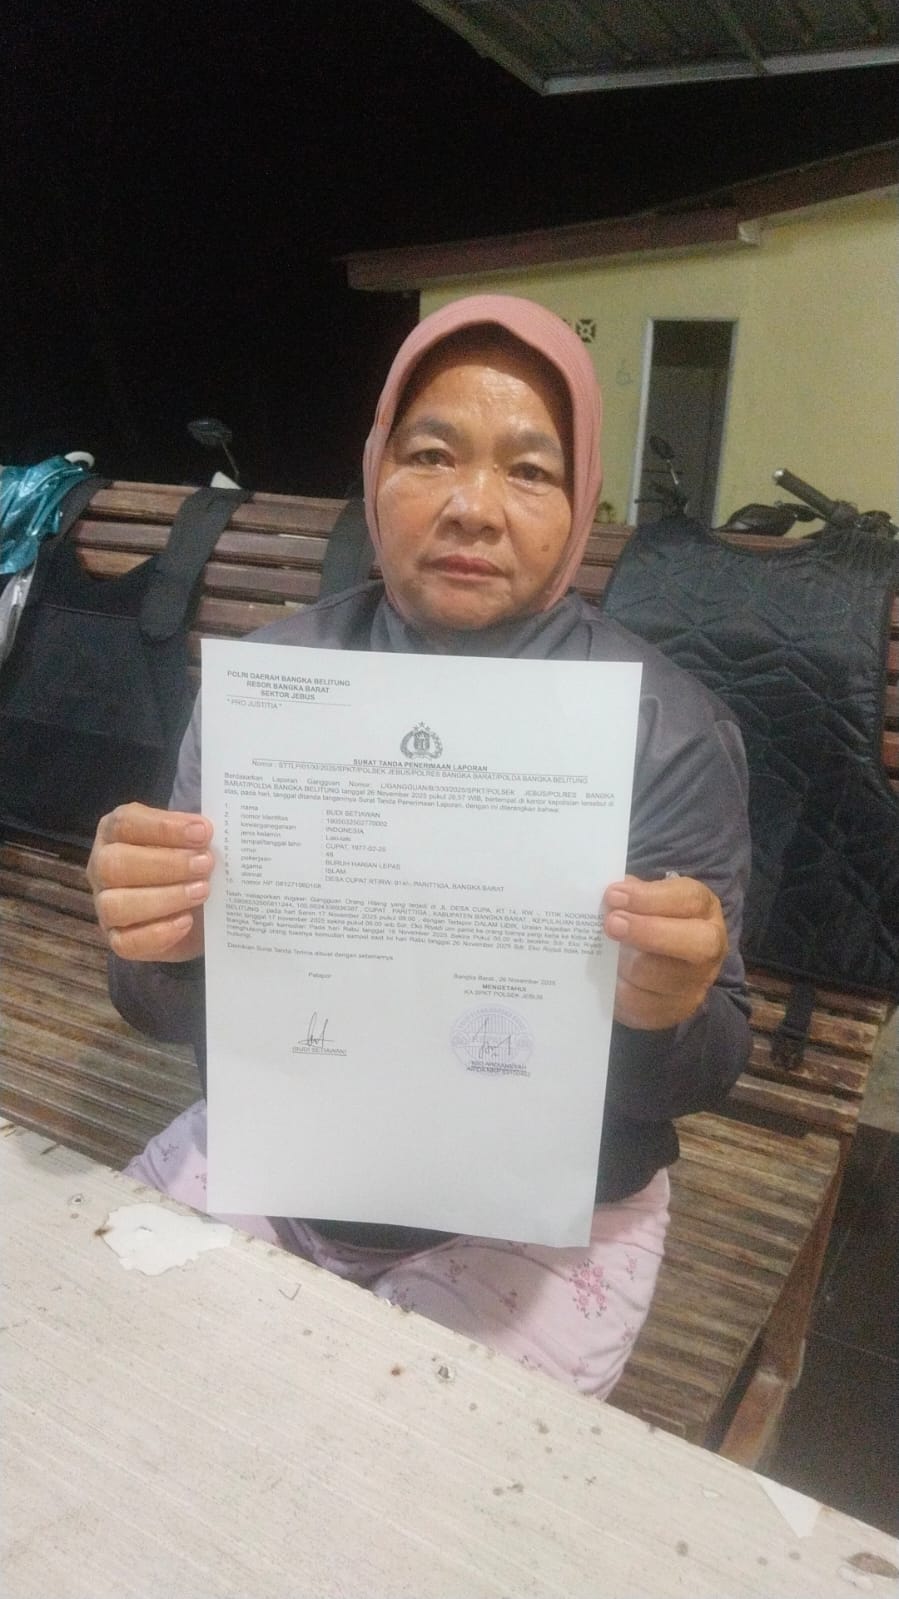 POLRI DAERAH BANGKA BELITUNG
RESOR BANGKA BARAT
SEKTOR JEBUS
" PRO JUSTITIA "
SURAT TANDA PENERIMAAN LAPORAN
Nomor : STTLP/01/XI/2025/SPKT/POLSEK JEBUS/POLRES BANGKA BARAT/POLDA BANGKA BELITUNG
Berdasarkan Laporan Gangguan Nomor: L/GANGGUAN/B/3/XI/2025/SPKT/POLSEK JEBUS/POLRES BANGKA
BARAT/POLDA BANGKA BELITUNG tanggal 26 November 2025 pukul 20.57 WIB, bertempat di kantor kepolisian tersebut di
atas, pada hari, tanggal ditanda tangannya Surat Tanda Penerimaan Laporan, dengan ini diterangkan bahwa:
1. nama : BUDI SETIAWAN
2. nomor identitas : 1905032502770002
3. kewarganegaraan : INDONESIA
4. jenis kelamin : Laki-laki
5. tempat/tanggal lahir : CUPAT, 1977-02-25
6. umur : 48
7. pekerjaan : BURUH HARIAN LEPAS
8. agama : ISLAM
9. alamat : DESA CUPAT RT/RW PARITTIGA, BANGKA BARAT
10. nomor HP
Telah melaporkan dugaan Gangguan Orang Hilang yang terjadi di JL DESA CUPA, RT 14, RW -, TITIK KOORDINAT
CUPAT , PARITTIGA , KABUPATEN BANGKA BARAT , KEPULAUAN BANGKA
BELITUNG , pada hari Senin 17 November 2025 pukul 09.00 , dengan Terlapor DALAM LIDIK, Uraian Kejadian Pada hari
senin tanggal 17 november 2025 sekira pukul 09.00 wib Sdr. Eko Riyadi
Bangka Tengah kemudian Pada hari Rabu tanggal 19 November 2025 Sekira Pukul
sampai saat ini hari Rabu tanggal 26 November 2025 Sdr. Eko Riyadi tidak bisa di
hubungi.
Demikian Surat Tanda Terima dibuat dengan sebenarnya.
Pelapor
(BUDI SETIAWAN)
Bangka Barat, 26 November 2025
MENGETAHUI
KA SPKT POLSEK JEBUS